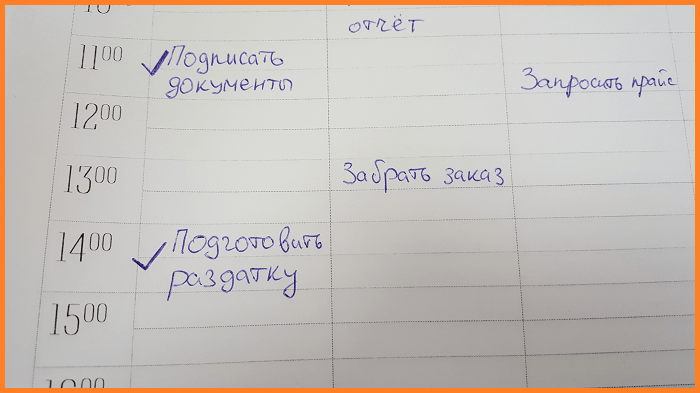 отчёт
11⁰⁰ Подписать
документы
Запросить прайс
12⁰⁰
13⁰⁰ Забрать заказ
14⁰⁰ Подготовить
раздатку
15⁰⁰